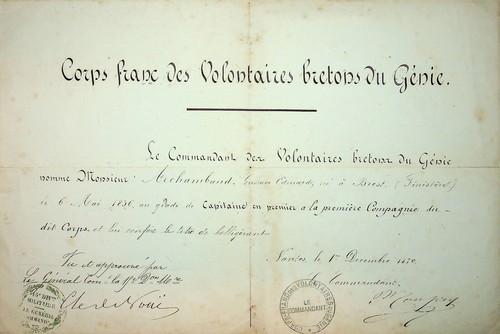 Corps franc des Volontaires bretons du Génie.
Le Commandant des Volontaires bretons du Génie
nomme Monsieur: Archambaud, Edouard, né à Brest, (Finistère)
le 6 Mai 1836, au grade de Capitaine en premier à la première Compagnie du-
dit Corps, et lui confère le titre de belligérant.
Nantes, le 1er Décembre 1870.
Vu et approuvé par
Le Général Com. la Don Mre
Le Commandant,
15e DIVon
MILITAIRE
LE GÉNÉRAL
CORPS FRANC DES VOLONTAIRES DU GÉNIE
LE
COMMANDANT